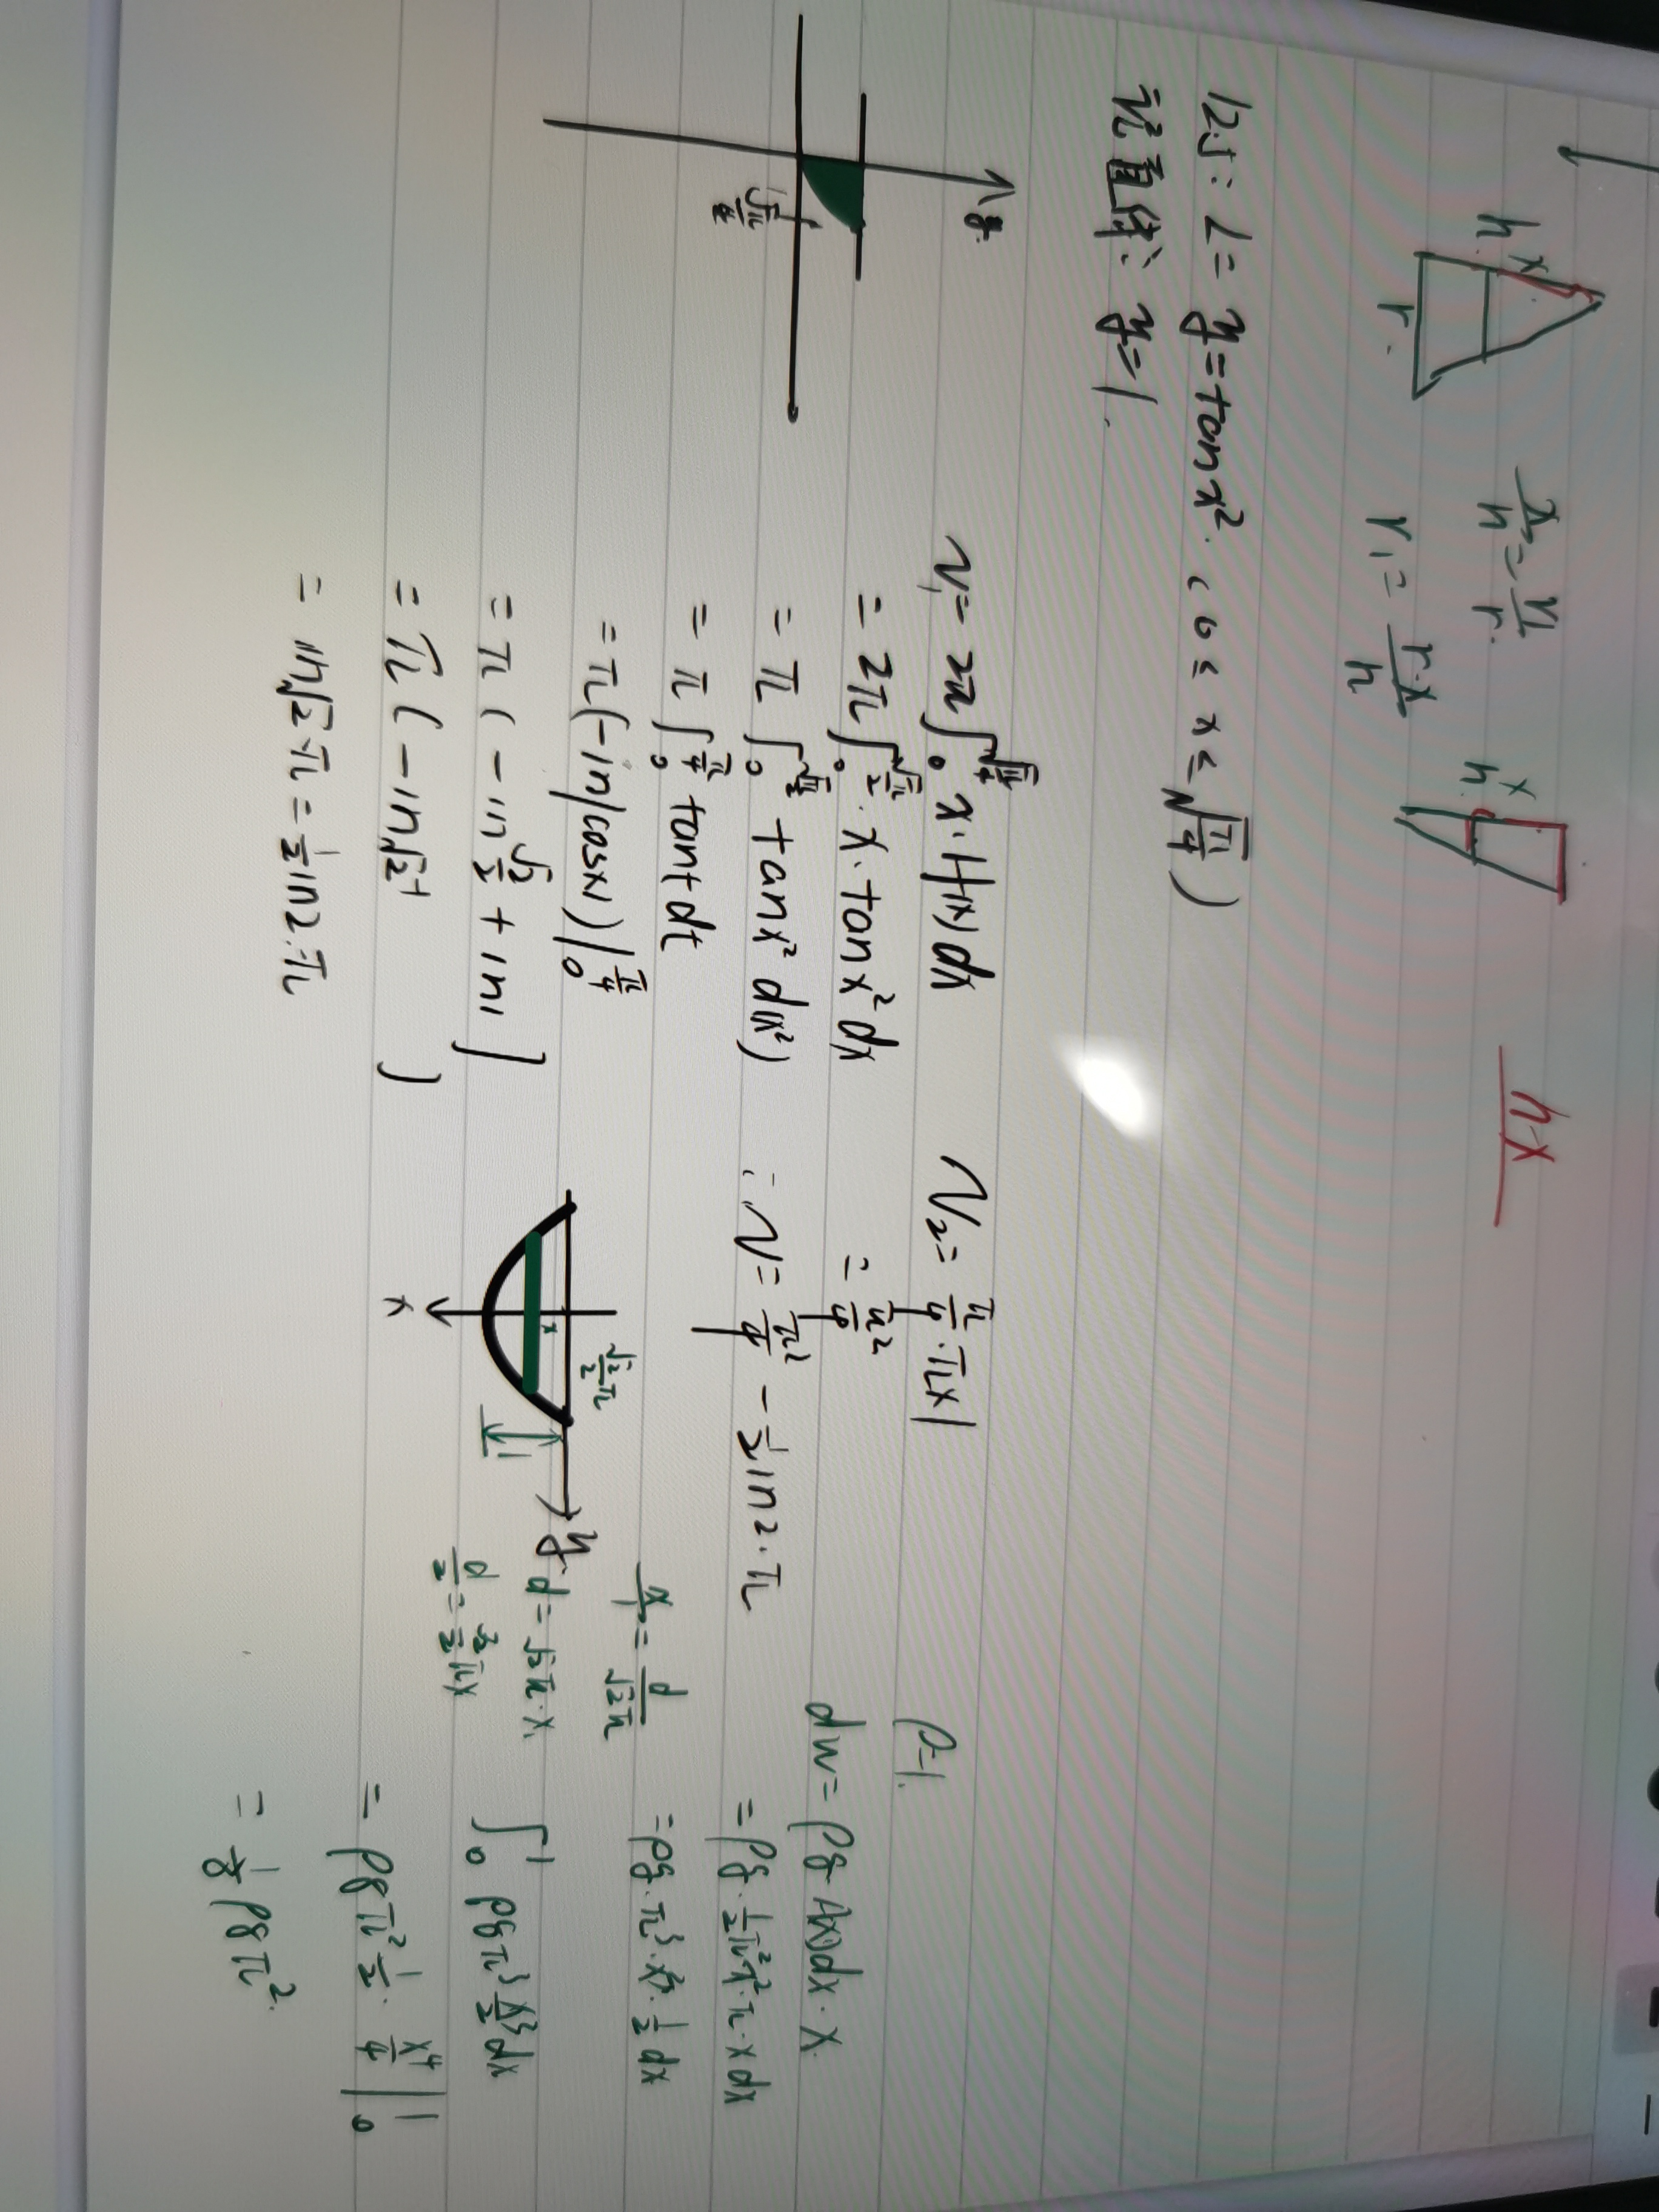 h x r.
x/h = r₁/r.
r₁ = r·x/h
x h
h-x
125: L = y = tanx². (0 ≤ x ≤ √(π/4))
直线: y=1.
y
√(π/4)
V₁ = 2π∫₀^√(π/4) x·f(x)dx
= 2π∫₀ x·tanx²dx
= π∫₀ tanx² d(x²)
= π∫₀^(π/4) tant dt
= π(-ln|cosx|)|₀^(π/4)
= π(-ln √2/2 + ln1]
= π(-ln√2⁻¹ )
= ln√2·π = ½ln2·π
V₂ = π/4·π×1
= π²/4
∴V = π²/4 - ½ln2·π
√2/2 π
x
y
1
x
x/1 = d/√2π
d = √2π·x
ρ=1.
dw = ρg A(x)dx·x.
= ρg·½π²x²·π·xdx
= ρg·π³·x³·½dx
∫₀¹ ρgπ³ x³/2 dx
= ρgπ² ½· x⁴/4 |₀¹
= ⅛ρgπ².